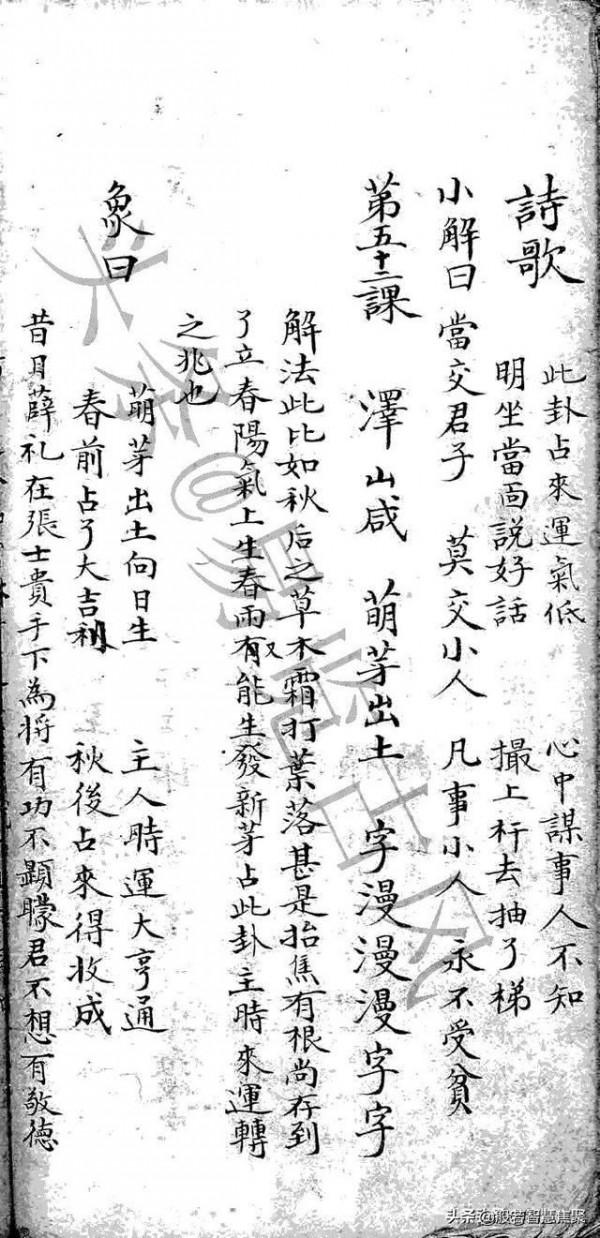 詩歌
此卦占來運氣低　心中謀事人不知
明坐當面說好話　撮上杆去抽了梯
小解曰當交君子　莫交小人　凡事小人　永不受貧
第五十二課　澤山咸　萌芽出土　字漫漫漫字字
解法此比如秋后之草木霜打葉落甚是抬焦有根尚存到
了立春陽氣上生春雨有又能生發新芽占此卦主時來運轉
之兆也
象曰
萌芽出土向日生　主人時運大亨通
春前占了大吉利　秋後占來得收成
昔日薛礼在張士貴手下為将有功不顕矇君不想有敬德
头条@易哲士风
头条@般若智慧焦聚